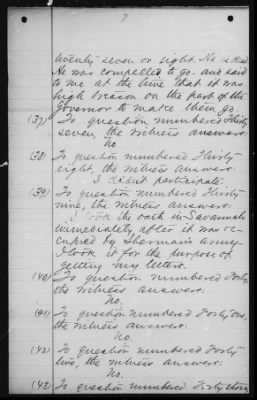 7
twenty seven or eight. He is dead
He was compelled to go. and said
to me at the time that it was
high treason on the part of the
Governor to make them go.
(37) To question numbered Thirty
seven, the witness answers.
No
(38) To question numbered Thirty
eight, the witness answers.
I didn't participate.
(39) To question numbered Thirty
nine, the witness answers.
I took the oath in Savannah
immediately after it was oc-
cupied by Sherman's army.
I took it for the purpose of
getting my letters.
(40) To question numbered Forty,
the witness answers.
No.
(41) To question numbered Forty one,
the witness answers.
No.
(42) To question numbered Forty
two, the witness answers.
No.
(43) To question numbered Forty three